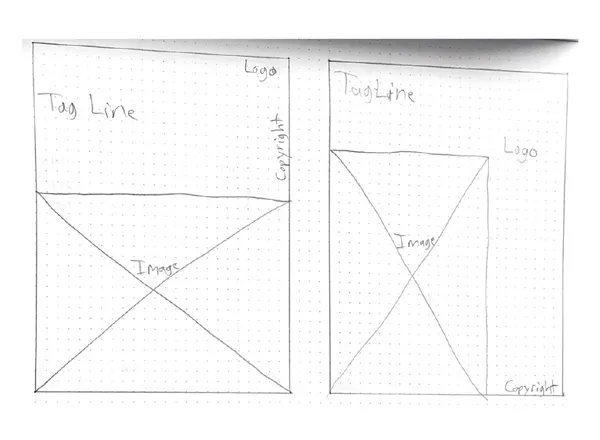 Logo
Tag Line
Copyright
Image
TagLine
Logo
Image
Copyright